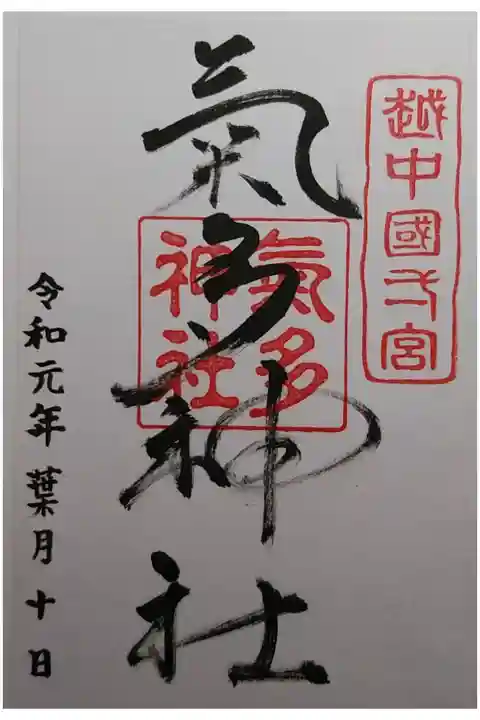 越中國一宮
氣多神社
氣多
神社
令和元年葉月十日